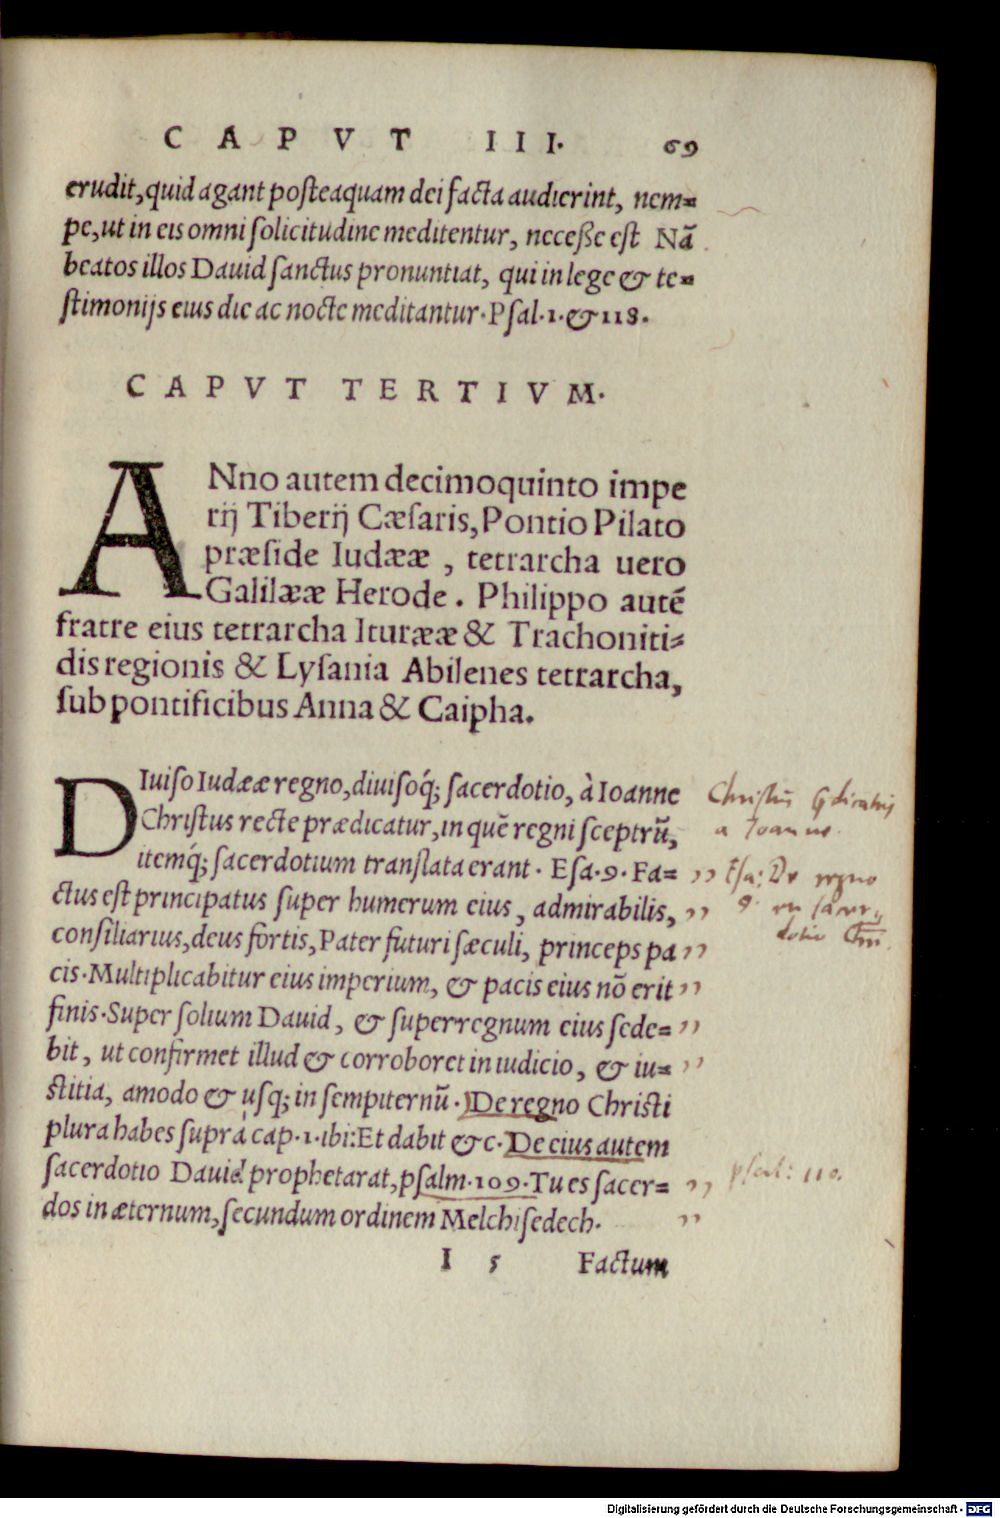 CAPVT III. 69
erudit, quid agant posteaquam dei facta audierint, nem=
pe, ut in eis omni solicitudine meditentur, necesse est Nã
beatos illos Dauid sanctus pronuntiat, qui in lege & te=
stimonijs eius die ac nocte meditantur. Psal. 1. & 118.
CAPVT TERTIVM.
ANno autem decimoquinto impe
rij Tiberij Cæsaris, Pontio Pilato
præside Iudææ, tetrarcha uero
Galilææ Herode. Philippo autẽ
fratre eius tetrarcha Iturææ & Trachoniti=
dis regionis & Lysania Abilenes tetrarcha,
sub pontificibus Anna & Caipha.
DIuiso Iudææ regno, diuisoq́; sacerdotio, à Ioanne
Christus recte prædicatur, in quẽ regni sceptrũ,
itemq́; sacerdotium translata erant. Esa. 9. Fa= ,,
ctus est principatus super humerum eius, admirabilis, ,,
consiliarius, deus fortis, Pater futuri sæculi, princeps pa ,,
cis. Multiplicabitur eius imperium, & pacis eius nõ erit ,,
finis. Super solium Dauid, & super regnum eius sede= ,,
bit, ut confirmet illud & corroboret in iudicio, & iu= ,,
stitia, amodo & usq; in sempiternũ. De regno Christi
plura habes supra cap. 1. ibi: Et dabit &c. De eius autem
sacerdotio Dauid prophetarat, psalm. 109. Tu es sacer= ,,
dos in æternum, secundum ordinem Melchisedech. ,,
I 5 Factum
Christus
a Joanne.
Esa: De regno
9 en sacer,,
dotio
psal: 110.
Digitalisierung gefördert durch die Deutsche Forschungsgemeinschaft - DFG